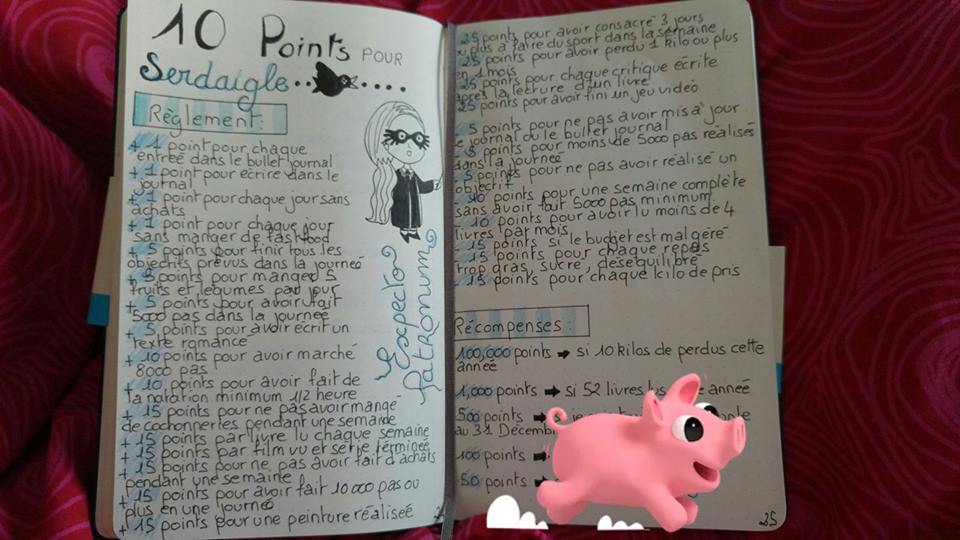 10 Points POUR
Serdaigle
Règlement:
+ 1 point pour chaque
entrée dans le bullet journal
+ 1 point pour écrire dans le
journal
+ 1 point pour chaque jour sans
achats
+ 1 point pour chaque jour
sans manger de fastfood
+ 5 points pour finir tous les
objectifs prévus dans la journée
+ 5 points pour manger 5
fruits et légumes par jour
+ 5 points pour avoir fait
5000 pas dans la journée
+ 5 points pour avoir écrit un
texte romance
+ 10 points pour avoir marché
8000 pas
+ 10 points pour avoir fait de
la natation minimum 1/2 heure
+ 15 points pour ne pas avoir mangé
de cochonneries pendant une semaine
+ 15 points par livre lu chaque semaine
+ 15 points par film vu et série terminée
+ 15 points pour ne pas avoir fait d'achats
pendant une semaine
+ 15 points pour avoir fait 10 000 pas ou
plus en une journée
+ 15 points pour une peinture réalisée
Expecto
patronum
25 points pour avoir consacré 3 jours
ou plus à faire du sport dans la semaine
25 points pour avoir perdu 1 kilo ou plus
en 1 mois
25 points pour chaque critique écrite
après la lecture d'un livre
25 points pour avoir fini un jeu vidéo
5 points pour ne pas avoir mis à jour
le journal ou le bullet journal
5 points pour moins de 5000 pas réalisés
dans la journée
5 points pour ne pas avoir réalisé un
objectif
10 points pour une semaine complète
sans avoir fait 5000 pas minimum
10 points pour avoir lu moins de 4
livres par mois
15 points si le budget est mal géré
15 points pour chaque repas
trop gras, sucré, déséquilibré
15 points pour chaque kilo de pris
Récompenses:
100,000 points → si 10 kilos de perdus cette
année
1,000 points → si 52 livres année
500 points →
au 31 Décembre
100 points →
50 points →
25